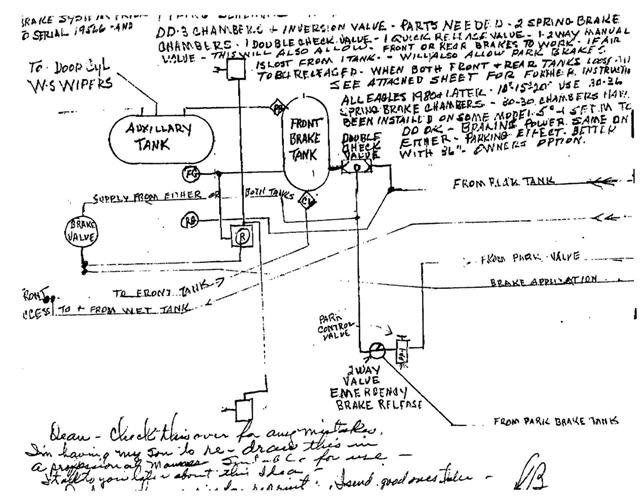 BRAKE SYSTEM
D SERIAL 19526 - AND
DD-3 CHAMBERS + INVERSION VALVE - PARTS NEEDED - 2 SPRING BRAKE
CHAMBERS. 1 DOUBLE CHECK VALVE - 1 QUICK RELEASE VALVE - 1-2WAY MANUAL
VALVE - THIS WILL ALSO ALLOW FRONT OR REAR BRAKES TO WORK. IF AIR
IS LOST FROM 1 TANK - WILL ALSO ALLOW PARK BRAKES
TO BE RELEASED. WHEN BOTH FRONT + REAR TANKS LOOSE AIR
SEE ATTACHED SHEET FOR FURTHER INSTRUCTION
ALL EAGLES 1980 + LATER - 10" 15" 20" USE 30-36
SPRING BRAKE CHAMBERS - 30-30 CHAMBERS HAVE
BEEN INSTALLED ON SOME MODEL
TO DOOR CYL
W-S WIPERS
AUXILLARY
TANK
FRONT
BRAKE
TANK
DOUBLE
CHECK
VALVE
BRAKING POWER SAME ON
EITHER - PARKING EFFECT. BETTER
WITH 36" - OWNERS OPTION.
FG
FROM TANK
SUPPLY FROM EITHER OR BOTH TANKS
RG
BRAKE
VALVE
R
FROM PARK VALVE
BRAKE APPLICATION
FRONT
ACCESS
TO FRONT TANK
TO + FROM WET TANK
PARK
CONTROL
VALVE
2 WAY
VALVE
EMERGENCY
BRAKE RELEASE
FROM PARK BRAKE TANK
Dean - Check this over for any mistakes.
I'm having my son to re-draw this in
a professional for use -
Talk to you later about this Idea.
Send good ones later -